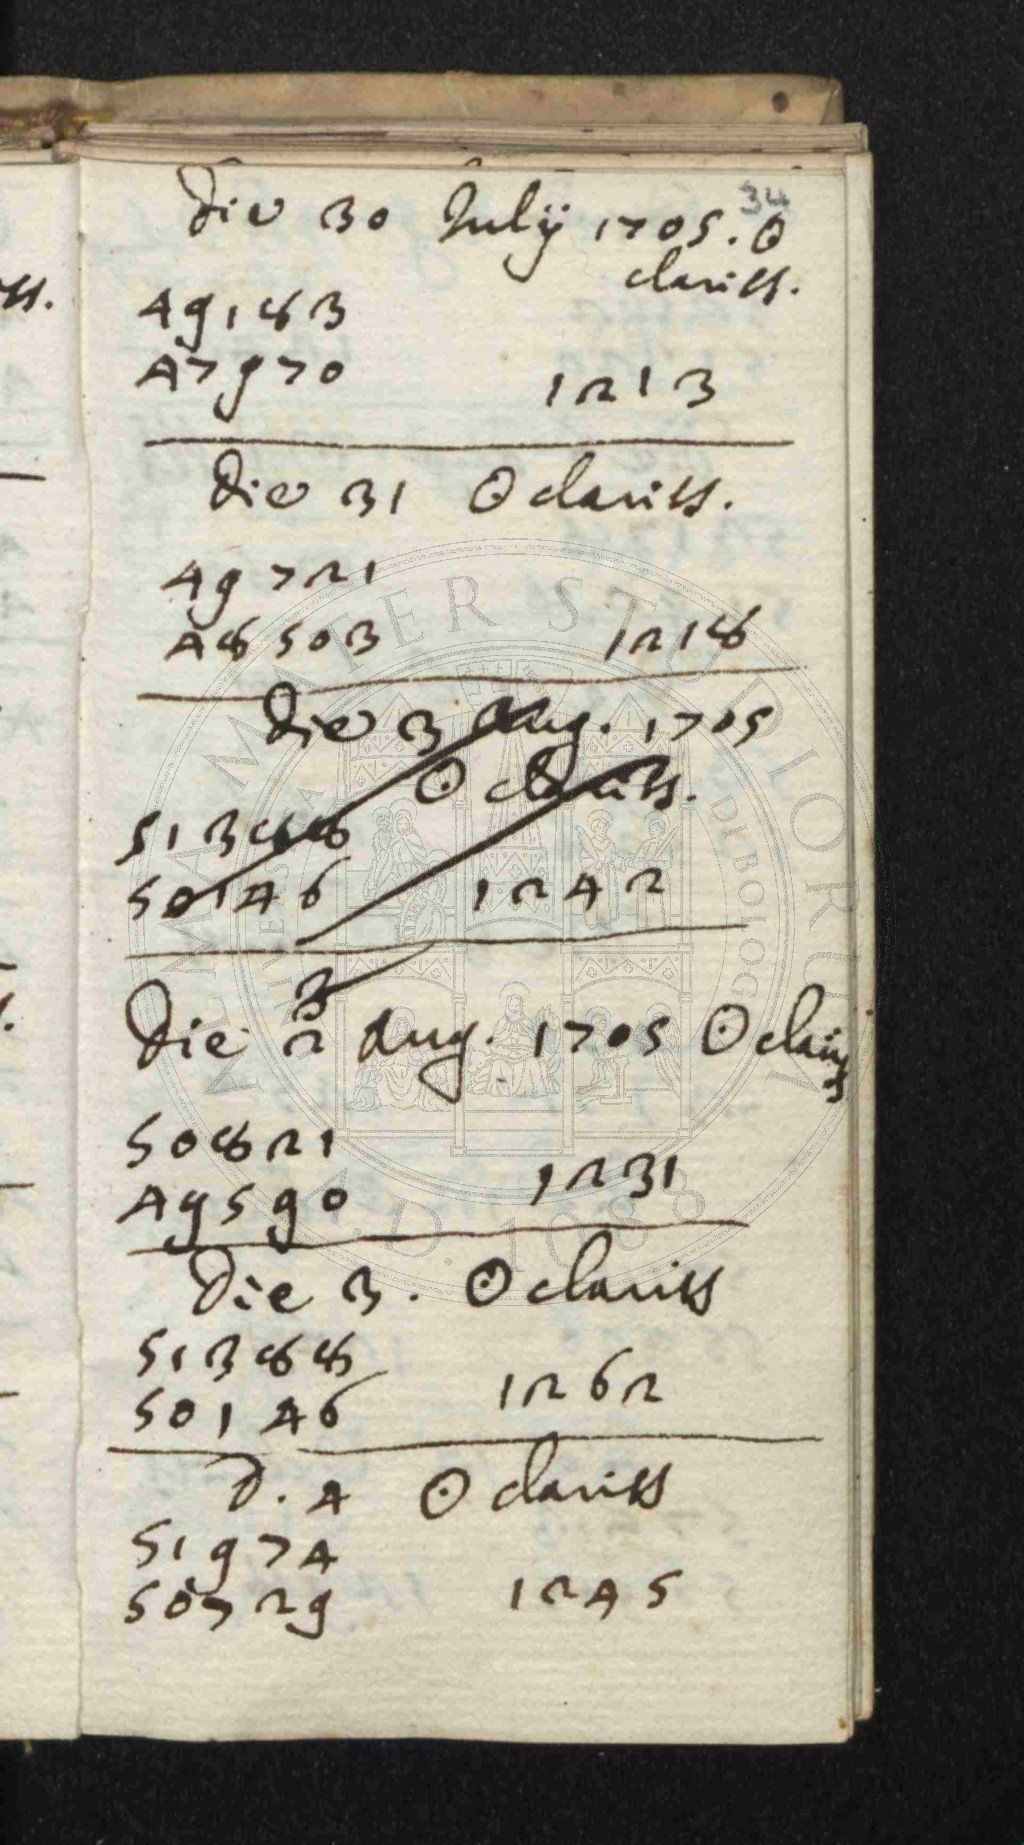 34
Die 30 Julij 1705. ☉
clariss.
49183
47970 1213
Die 31 ☉ clariss.
49721
48503 1218
Die 3 Aug. 1705
☉ clariss.
51388
50146 1242
3
Die 2 Aug. 1705 ☉ clariss
50821
49590 1231
Die 3. ☉ clariss
51388
50146 1262
D. 4 ☉ clariss
51974
50729 1245
ALMA MATER STUDIORUM
A.D. 1088